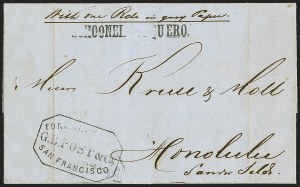 With one Role in gray Paper
SCHOONER VAQUERO.
Messrs Krull & Moll
FORWARDED
G.B. POST & Co
SAN FRANCISCO
Honolulu
Sandw. Islds.